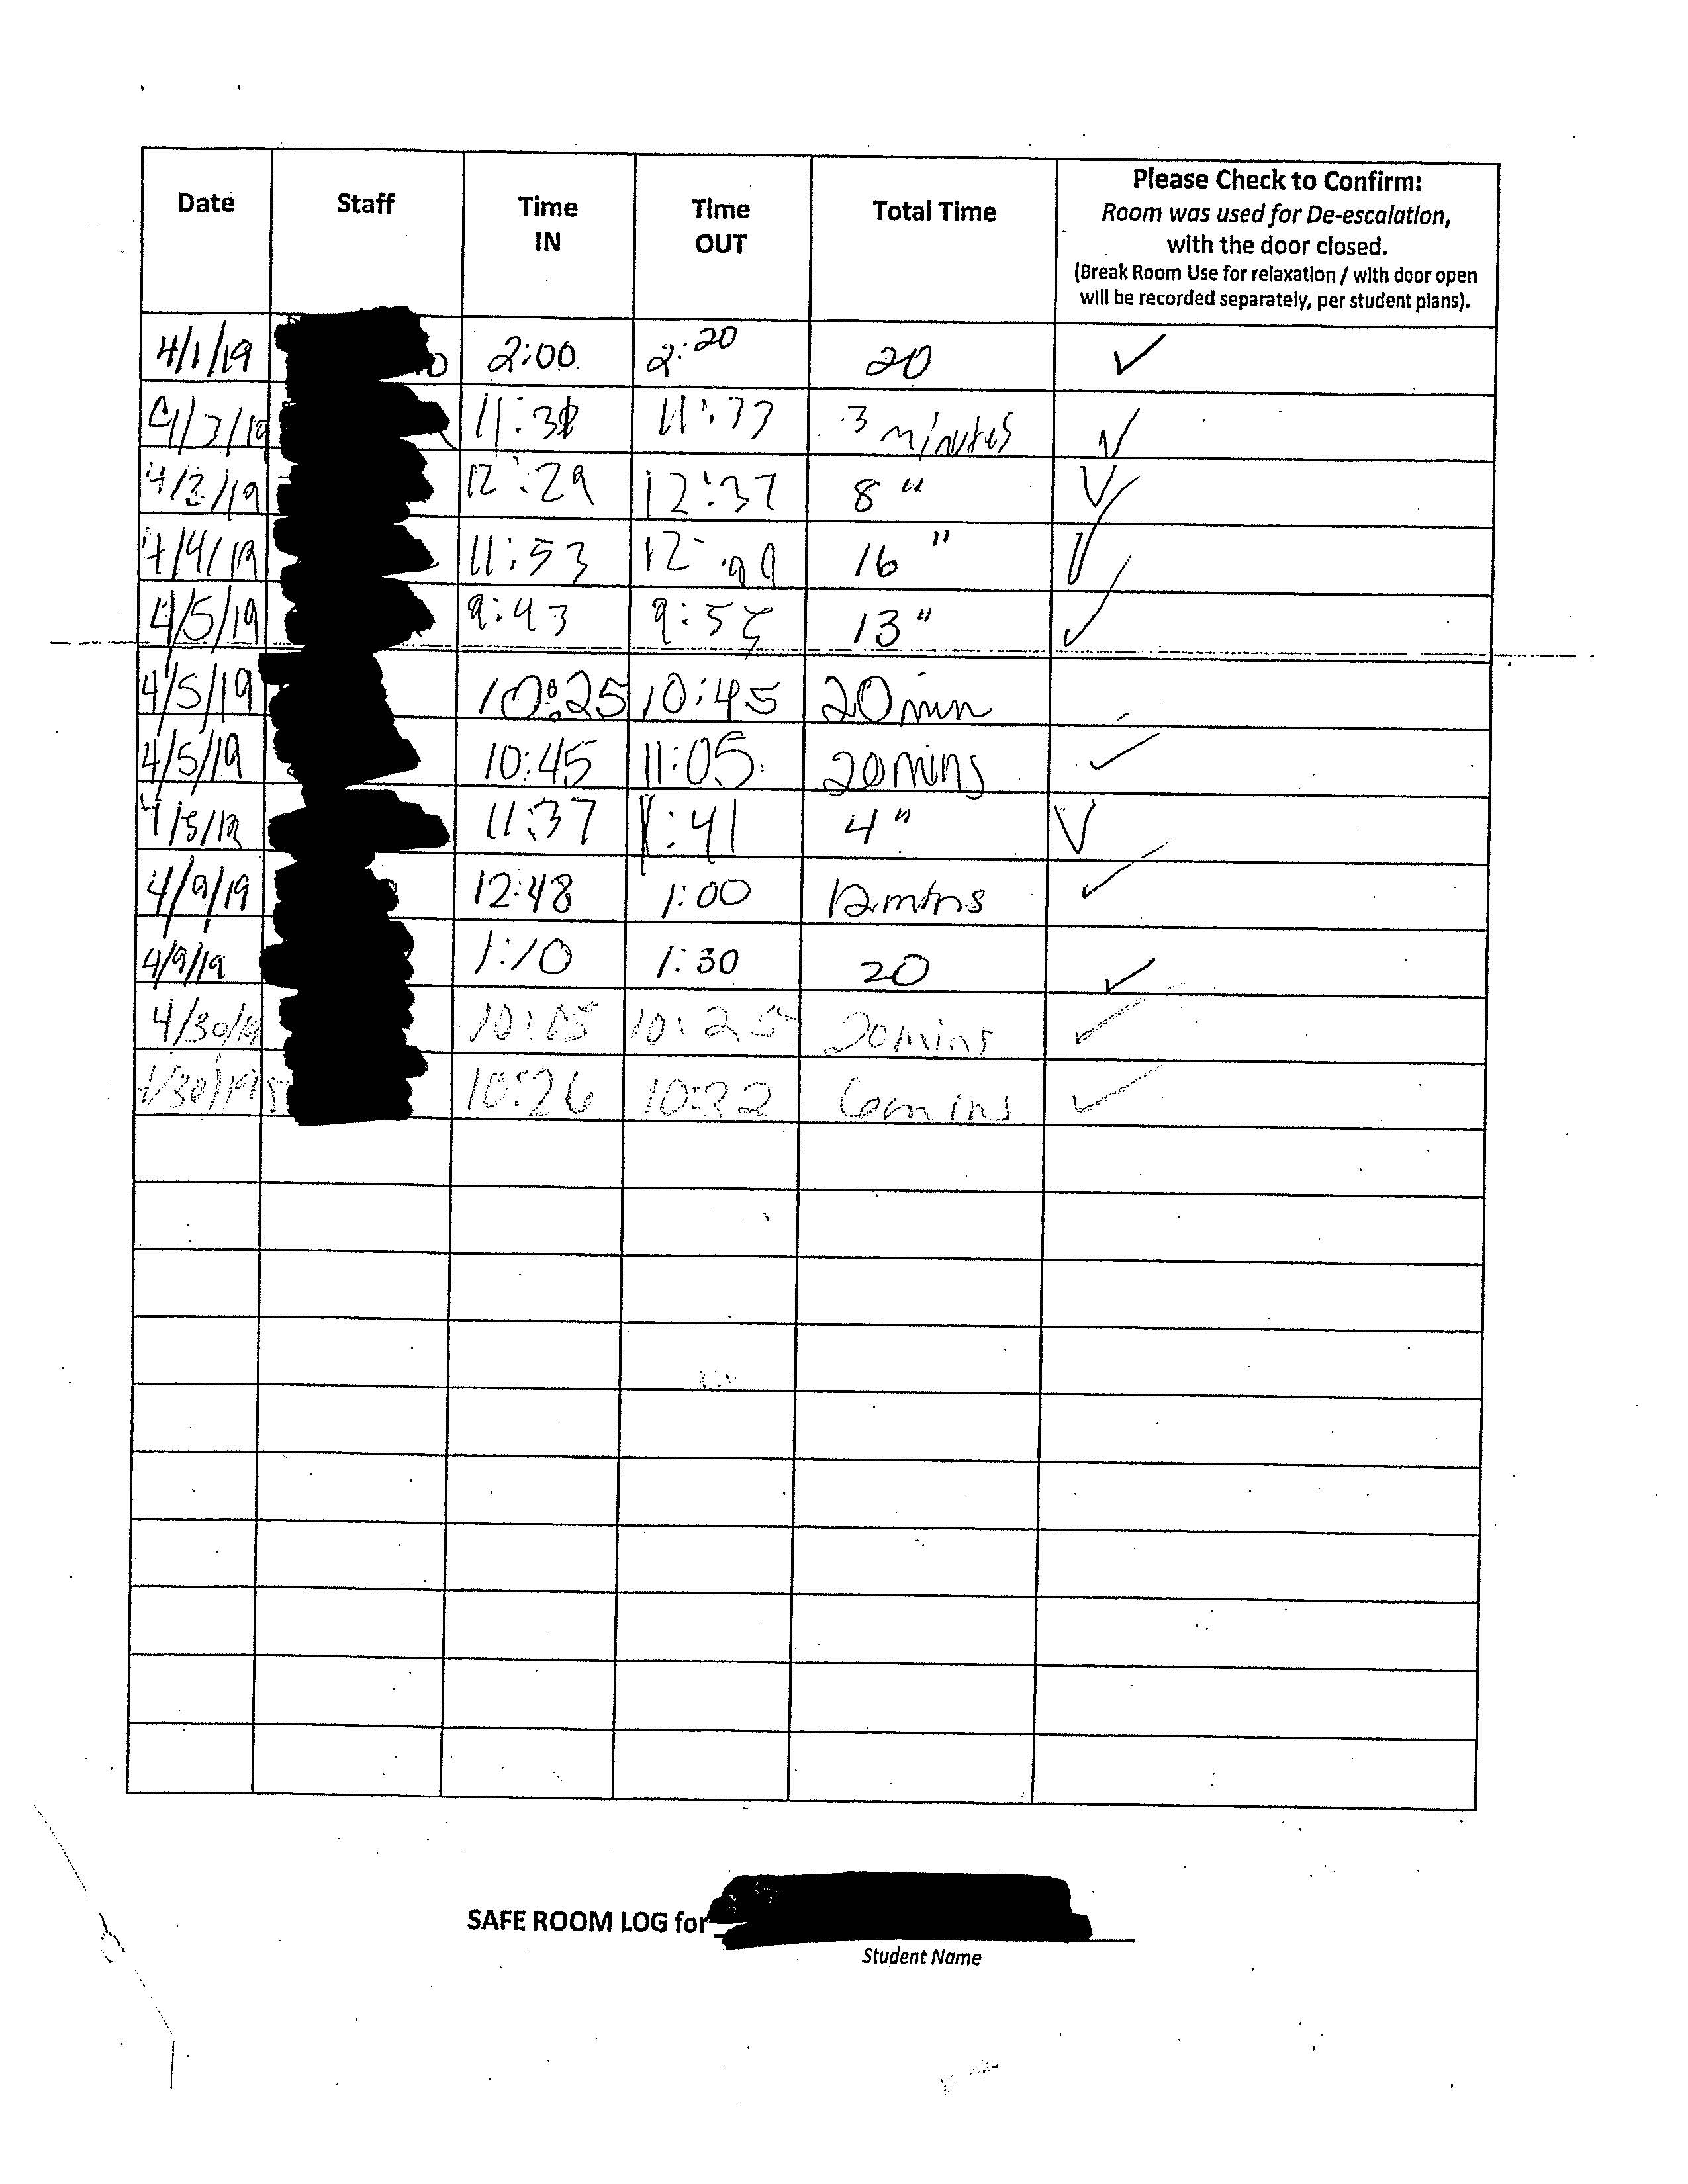 Date Staff Time IN Time OUT Total Time Please Check to Confirm:
Room was used for De-escalation,
with the door closed.
(Break Room Use for relaxation / with door open
will be recorded separately, per student plans).
4/1/19 2:00 2:20 20 ✓
4/3/19 11:33 3 minutes ✓
12:29 12:37 8 " ✓
4/4/19 11:53 16 " ✓
4/5/19 9:43 13 " ✓
4/5/19 10:25 10:45 20 min
4/5/19 10:45 11:05 20 mins ✓
4/5/19 11:37 :41 4 " ✓
4/9/19 12:48 1:00 12 mins ✓
4/9/19 1:10 1:30 20 ✓
4/30/19 10:05 10:25 20 mins ✓
4/30/19 10:26 10:32 6 mins ✓
SAFE ROOM LOG for
Student Name